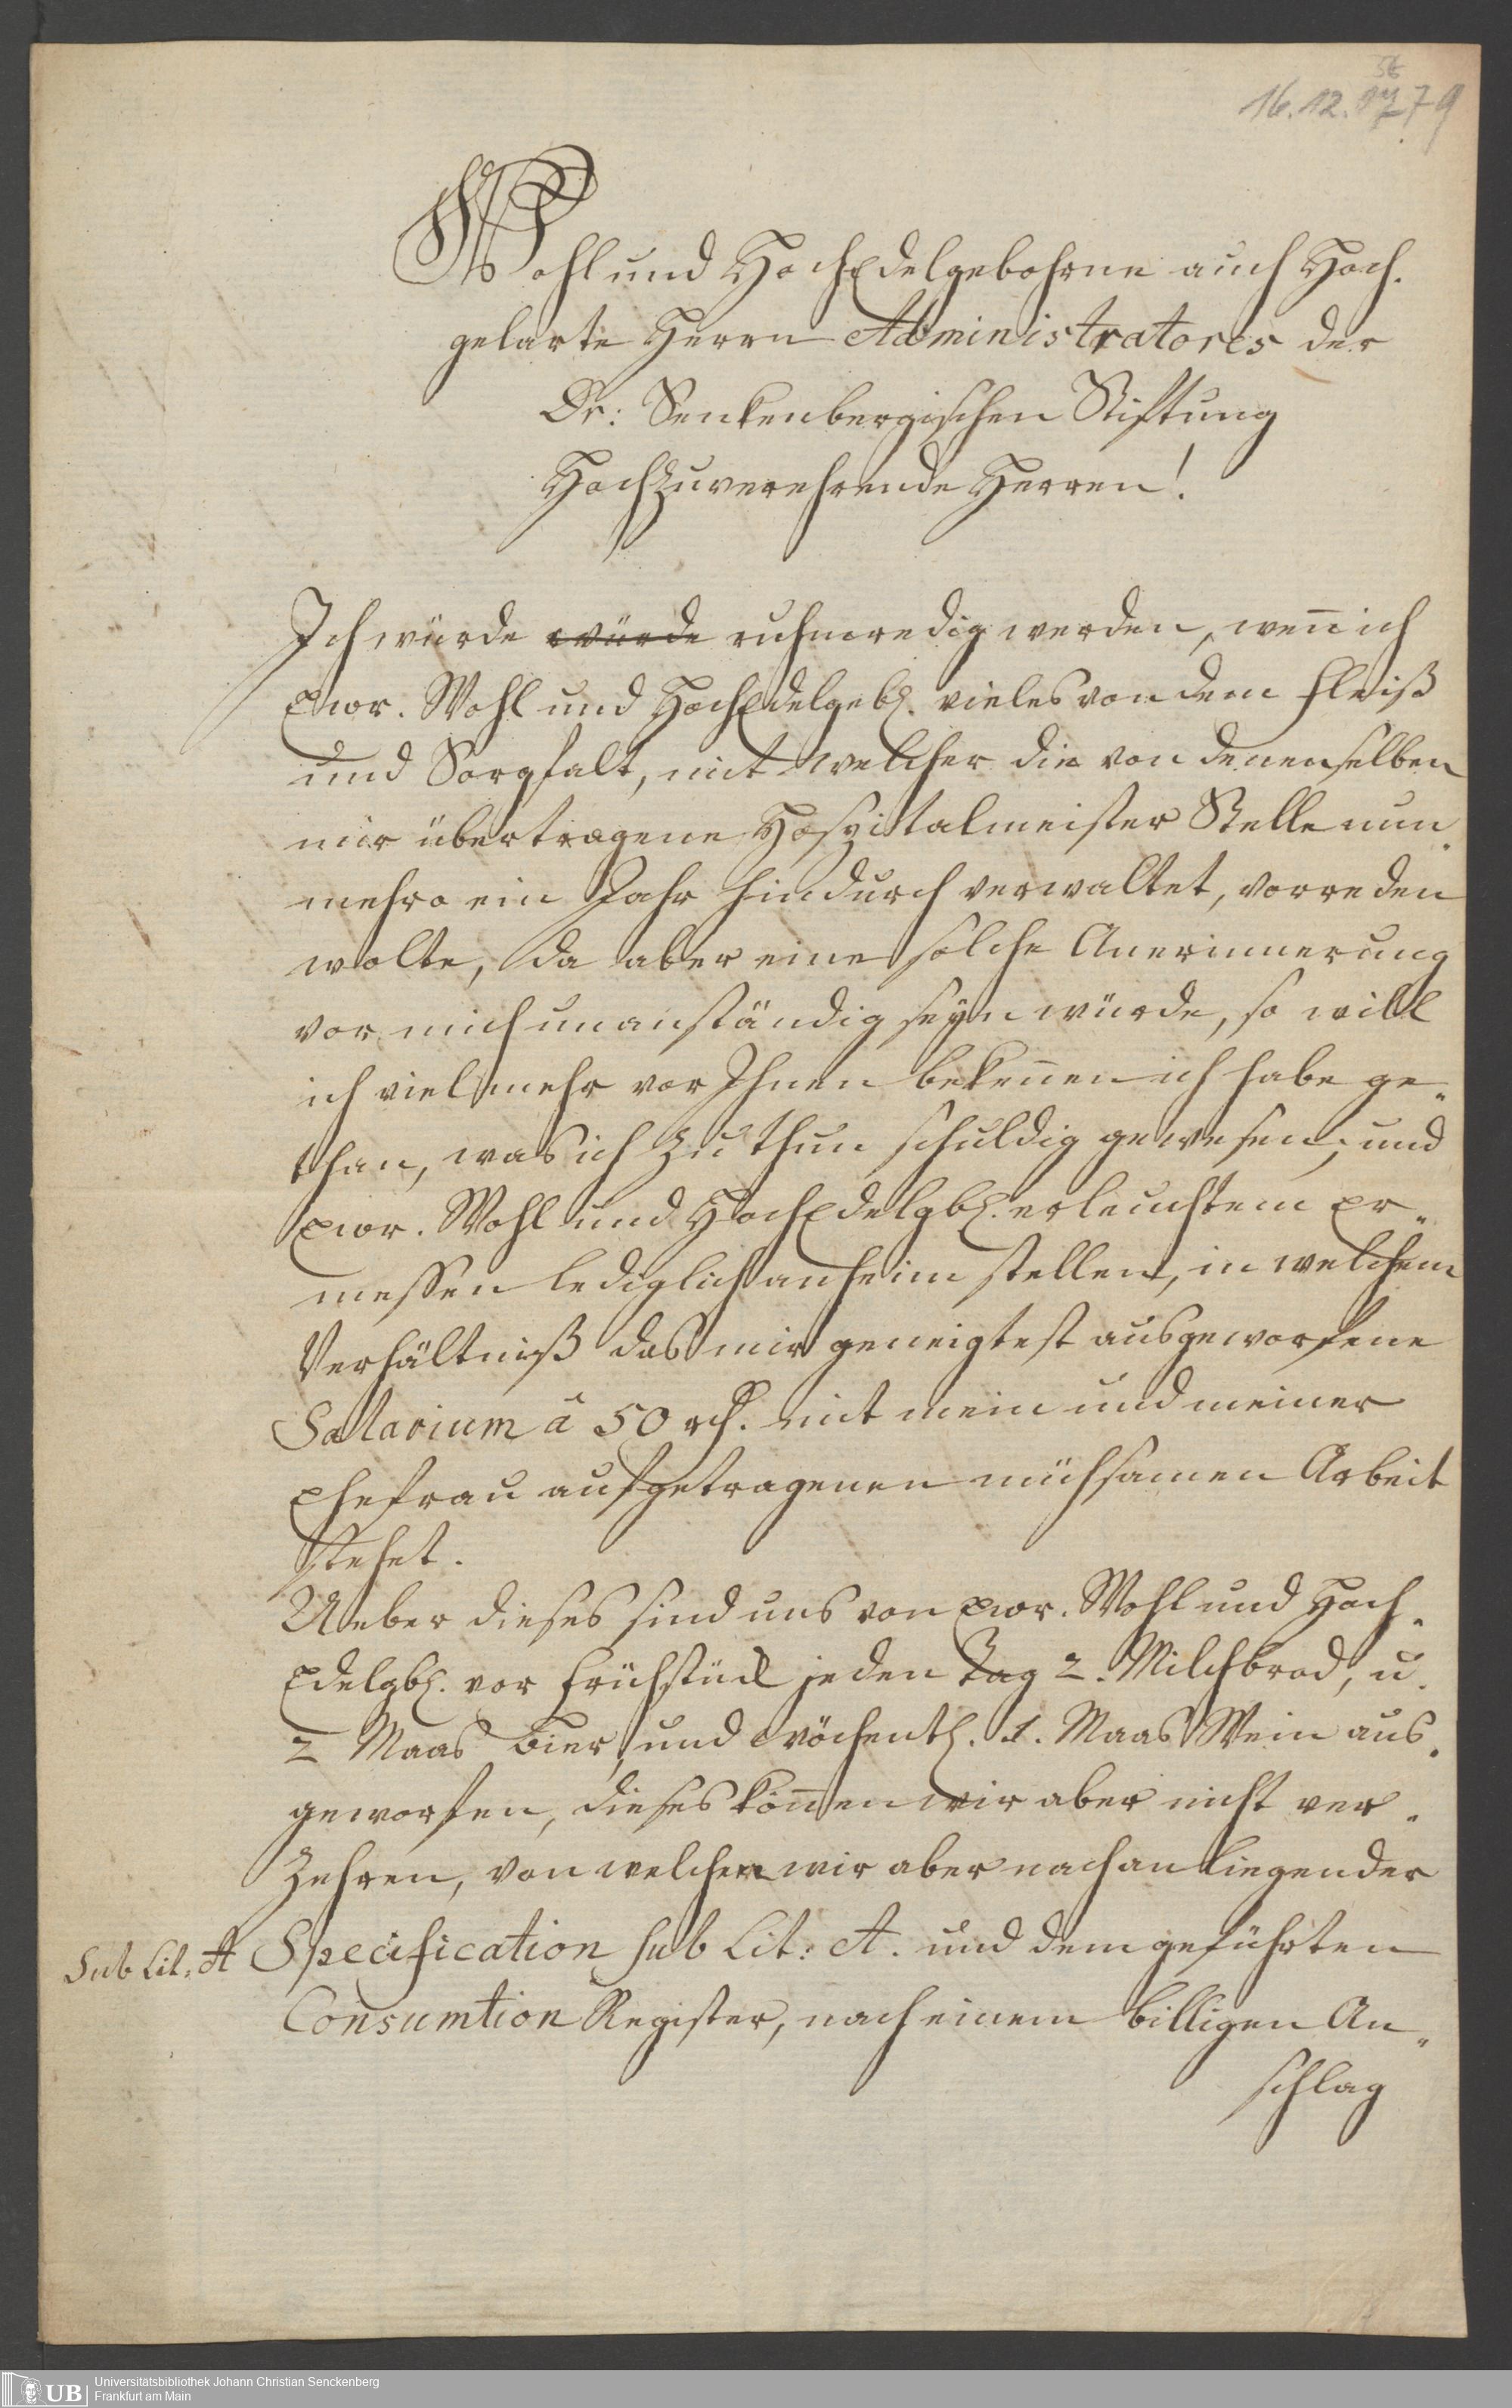 58
16.12.1779
Wohl und HochEdelgebohrne auch Hoch-
gelarte Herrn Administratores der
Dr: Senkenbergischen Stiftung
Hochzuverehrende Herren!
Ich würde würde ruhmredig werden, wen̄ ich
Ewr. Wohl und HochEdelgeb. vieles von dem Fleiß
und Sorgfalt, mit welcher die von denenselben
mir übertragene Hospitalmeister Stelle nun-
mehro ein Jahr hindurch verwaltet, vorreden
wolte, da aber eine solche Anerinnerung
vor mich unanständig seyn würde, so will
ich vielmehr vor Ihnen beken̄en ich habe ge-
than, was ich zu thun schuldig gewesen; und
Ewr. Wohl und HochEdelgb. erleuchtem Er-
messen lediglich anheim stellen, in welchem
Verhältniß das mir geneigtest ausgeworfene
Salarium â 50 rth. mit mein und meiner
Ehefrau aufgetragenen mühsamen Arbeit
stehet.
Ueber dieses sind uns von Ewr. Wohl und Hoch-
Edelgb. vor Frühstück jeden Tag 2. Milchbrod, u.
2 Maas Bier, und wöchentl. 1. Maas Wein aus-
geworfen, dieses kön̄en wir aber nicht ver-
zehren, von welchen wir aber nach anliegender
Sub Lit. A Specification sub Lit: A. und dem geführten
Consumtion Register, nach einem billigen An-
schlag
UB Universitätsbibliothek Johann Christian Senckenberg
Frankfurt am Main